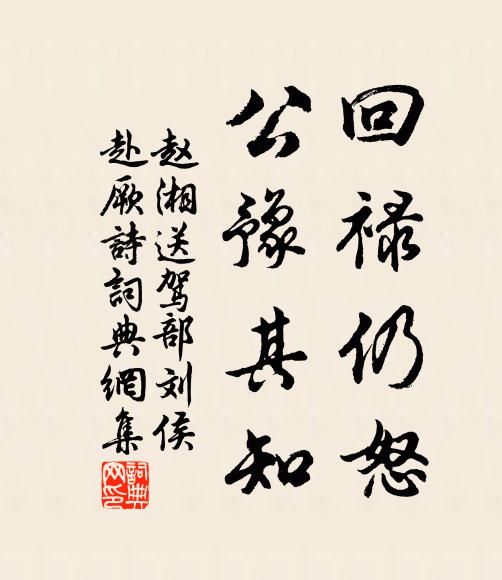 回禄仍怒
公豫其知
赵湘送驾部刘侯
赴厥詩詞典網集
詞典
网印